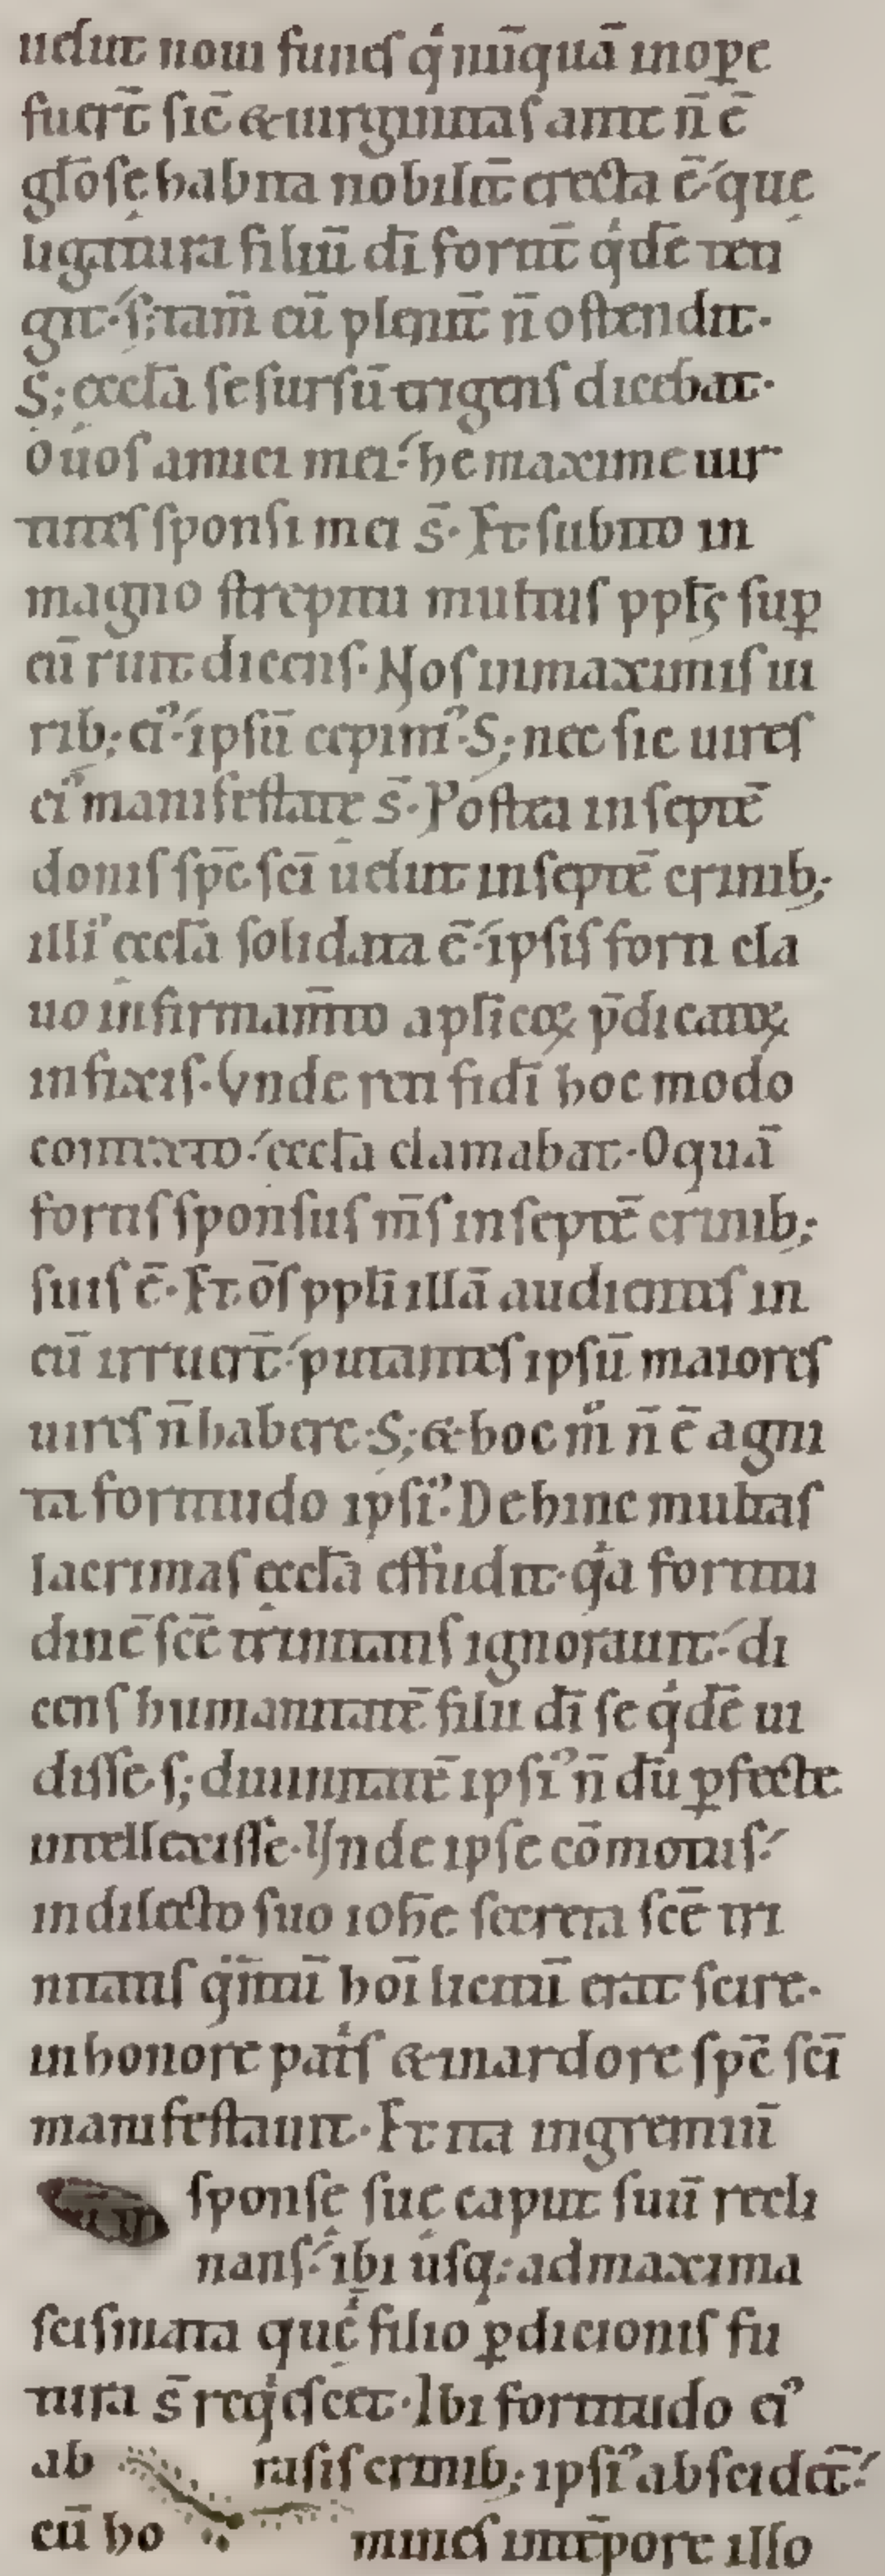 uelut noui funes q̇ nūquā in oꝑe
fuer̄t sic̄ & uirginitas ante n̄ ē
gl̄ose habita nobilit̄ erecta ē· quę
ligatura filiū dī fortit̄ q̇dē ten
git· s; tam̄ eū plenit̄ n̄ ostendit·
S; eccl̄a se sursū erigens dicebat·
O uos amici mei· hę maxime uir
tutes sponsi mei s̄· Et subito in
magno strepitu multus ppl̄s suꝑ
eū ruit dicens· Nos in maximis ui
rib; ei᾽· ipsū cepim᾽· S; nec sic uires
ei᾽ manifestate s̄· Postea in septē
donis sp̄c sc̄i uelut in septē crinib;
illi᾽ eccl̄a solidata ē· ipsis forti cla
uo in firmam̄to apl̄icoꝝ p̄dicatoꝝ
infixis· Vnde reti fidī hoc modo
contexto· eccl̄a clamabat· O quā
fortis sponsus m̄s in septē crinib;
suis ē· Et ōs ppl̄i illā audientes in
eū irruer̄t· putantes ipsū maiores
uires n̄ habere· S; & hoc m̊ n̄ ē agni
ta fortitudo ipsi᾽· Dehinc multas
lacrimas eccl̄a effudit· q̇a fortitu
dinē sc̄e trinitatis ignorauit· di
cens humanitatē filii dī se q̇dē ui
disse· s; diuinitatē ipsi᾽ n̄ dū ꝑfecte
intellexisse· Vnde ipse cōmotus·
in dilecto suo ioh̄e secreta sc̄e tri
nitatis q̇ntū hoī licitū erat scire·
in honore pat̓s & in ardore sp̄c sc̄i
manifestauit· Et ita in gremiū
sponsę suę caput suū recli
nans· ibi usq; ad maxima
scismata quę filio ꝑdicionis fu
tura s̄ req̇escet· Ibi fortitudo ei᾽
ab rasis crinib; ipsi᾽ abscidet̄·
cū ho mines in tēpore illo